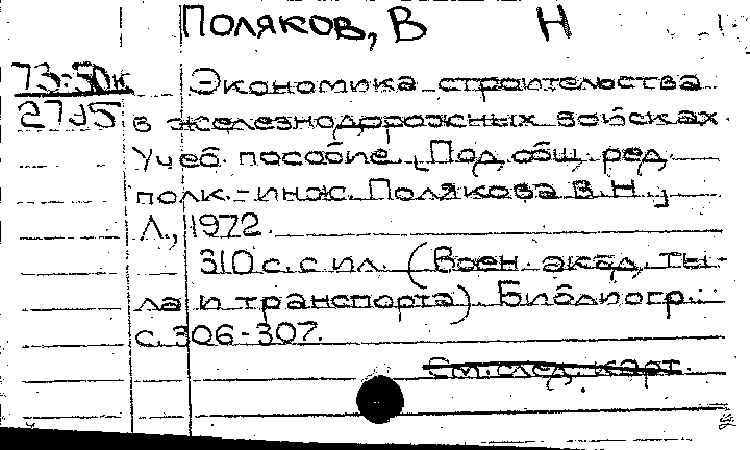 Поляков, В Н
73:50к Экономика строительства
27J5 в железнодорожных войсках.
Учеб. пособие. [Под общ. ред.
полк.-инж. Полякова В.Н.]
Л., 1972.
310 с. с ил. (Воен. акад. ты-
ла и транспорта). Библиогр.:
с. 306-307.
См. след. карт.